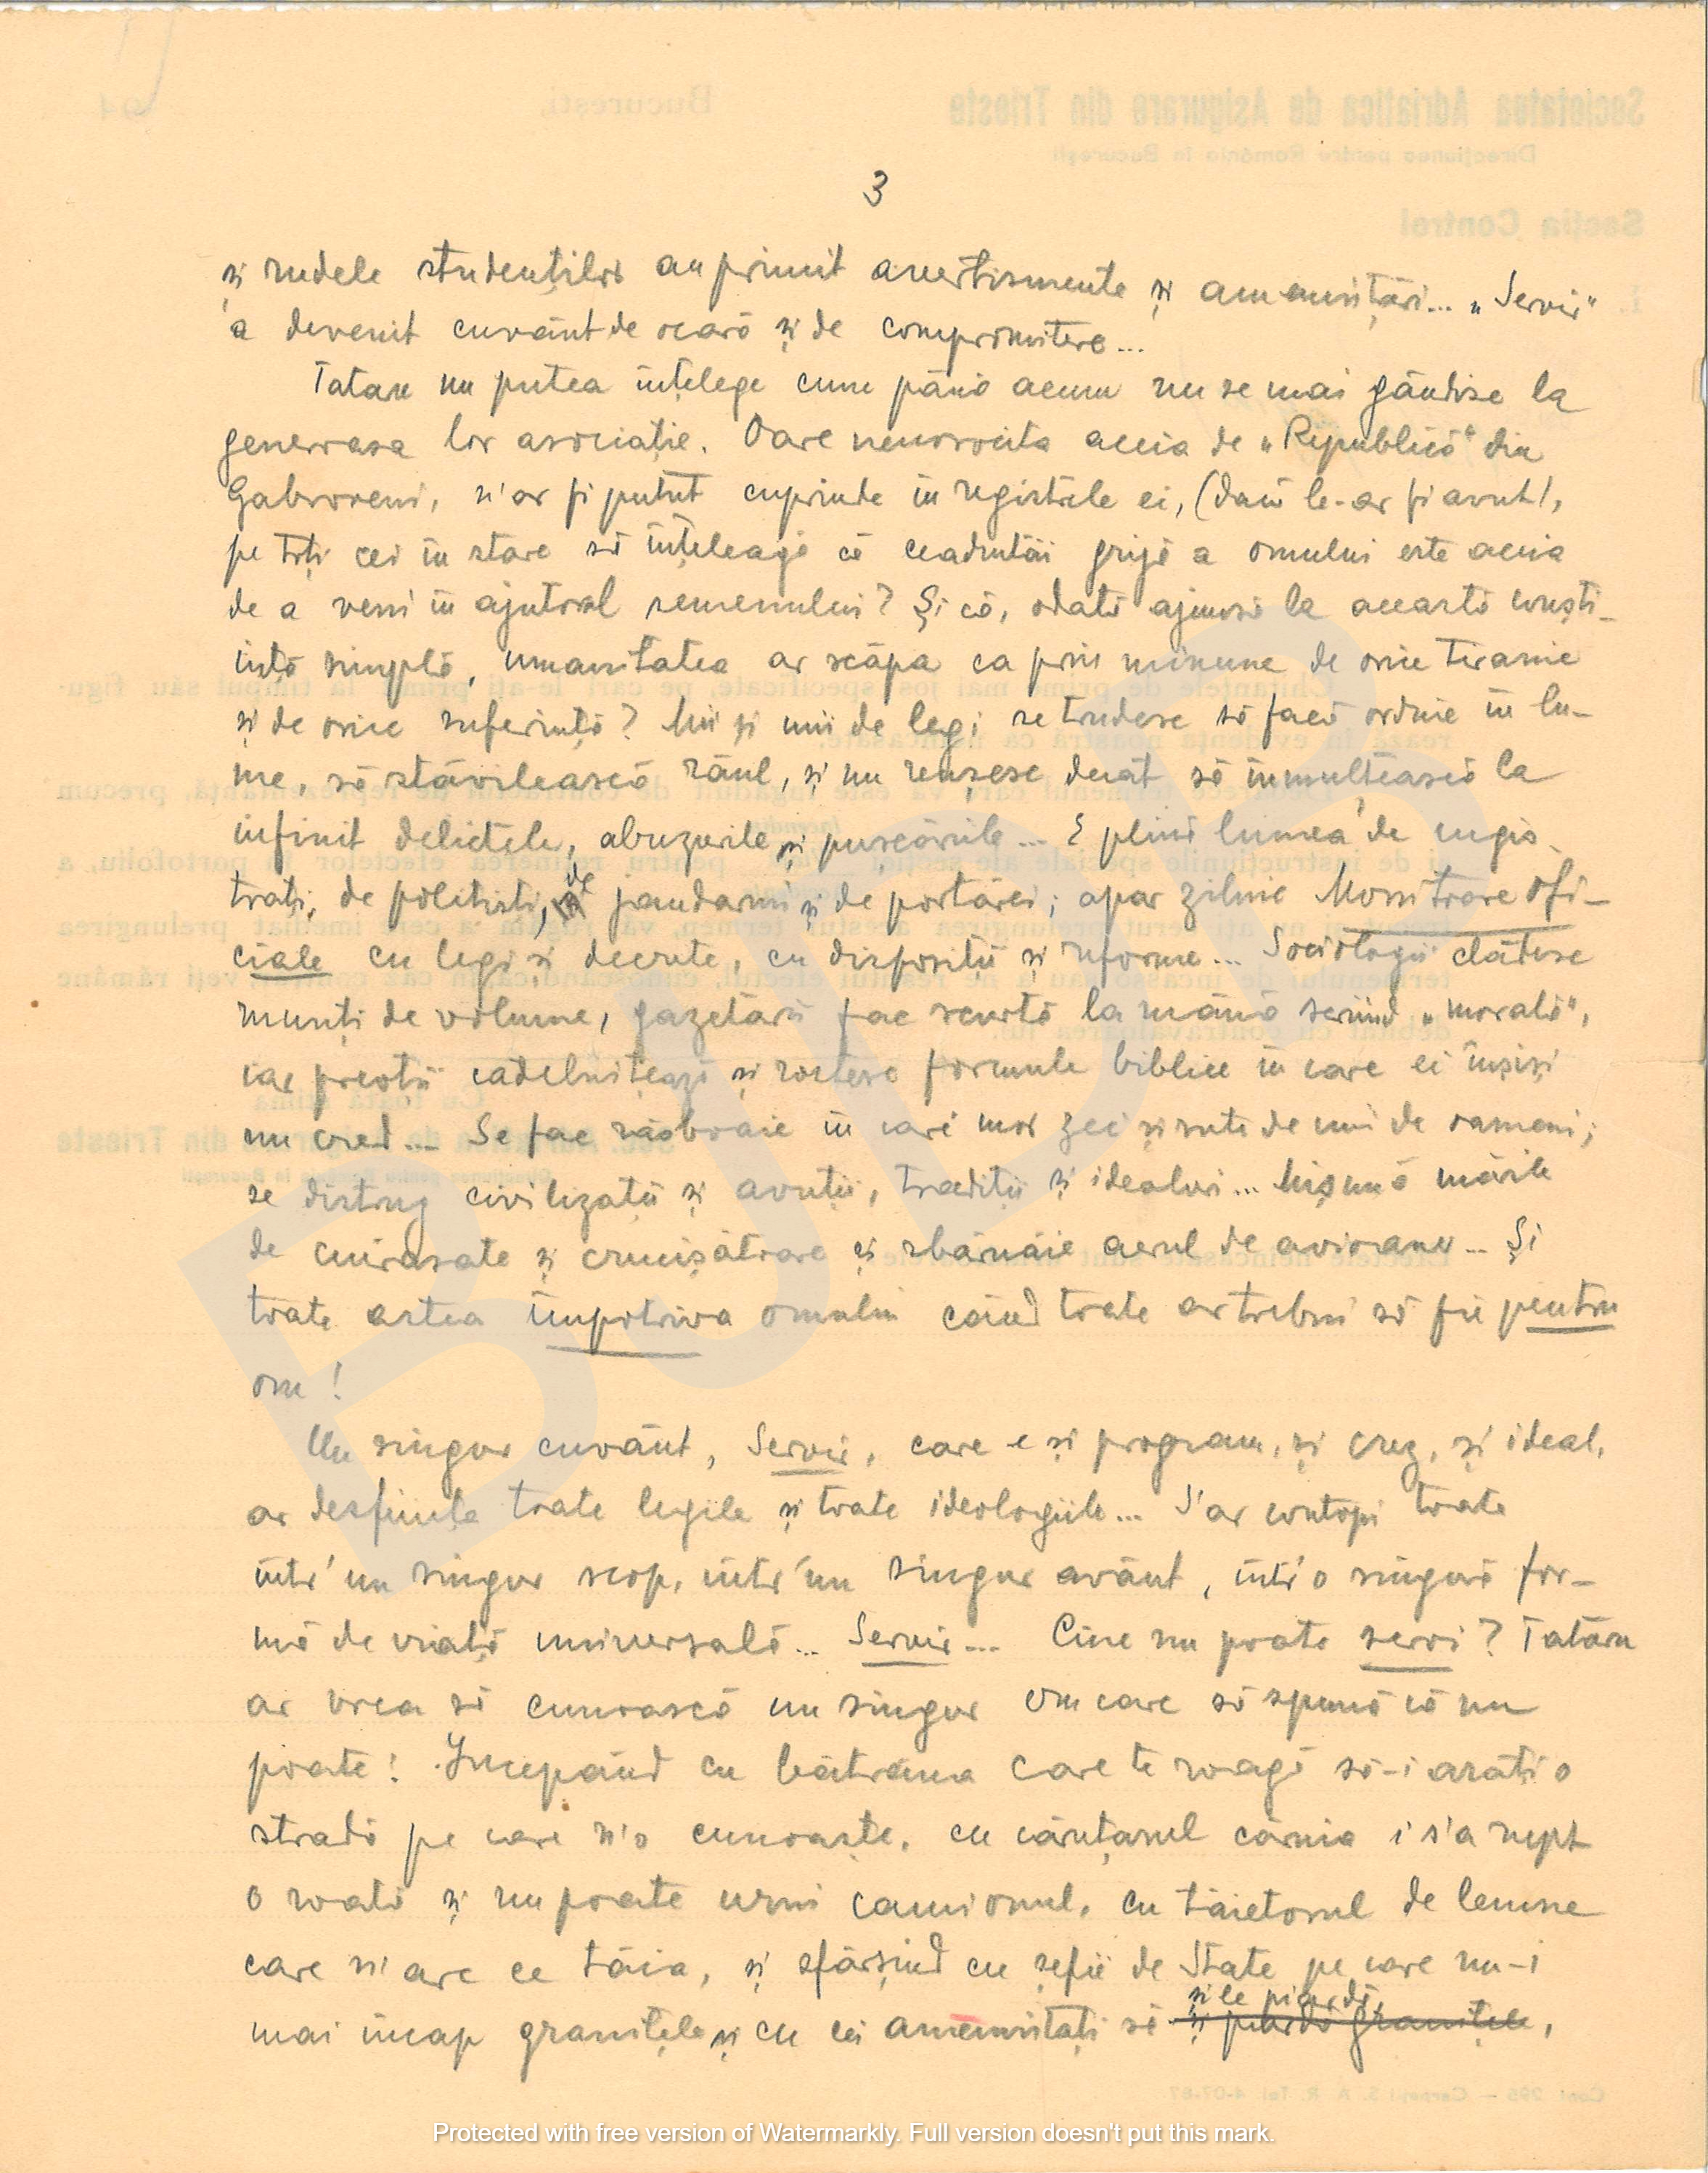 3
și rudele studenților au primit avertismente și amenințări... „Servir"
a devenit cuvânt de ocară și de compromitere...
Tataru nu putea înțelege cum până acum nu se mai gândise la
generoasa lor asociație. Oare nenorocita aceia de „Republică" din
Gabroveni, n'ar fi putut cuprinde în registrele ei, (dacă le-ar fi avut),
pe toți cei în stare să înțeleagă că ceadintâi grijă a omului este aceia
de a veni în ajutorul semenului? Și că, odată ajunsă la această conști-
ință simplă, umanitatea ar scăpa ca prin minune de orice tiranie
și de orice suferință? Mii și mii de legi se trudesc să facă ordine în lu-
me, să stăvilească răul, și nu reușesc decât să înmulțească la
infinit delictele, abuzurile și pușcăriile... E plină lumea de magis-
trați, de polițiști, de jandarmi și de portărei; apar zilnic Monitoare ofi-
ciale cu legi și decrete, cu dispoziții și reforme... Sociologii clădesc
munți de volume, gazetarii fac scurtă la mână scriind „morală",
iar preoții cădelnițează și rostesc formule biblice în care ei înșiși
nu cred... Se fac răsboaie în cari mor zeci și sute de mii de oameni;
se distrug civilizații și avuții, tradiții și idealuri... Mișună mările
de cuirasate și crucișătoare și sbârnâie aerul de avioane... Și
toate astea împotriva omului când toate ar trebui să fie pentru
om!
Un singur cuvânt, Servir, care e și program, și crez, și ideal,
ar desființa toate legile și toate ideologiile... S'ar contopi toate
într'un singur scop, într'un singur avânt, într'o singură for-
mă de viață universală... Servir... Cine nu poate servi? Tatăru
ar vrea să cunoască un singur om care să spună că nu
poate! Începând cu bătrâna care te roagă să-i arăți o
stradă pe care n'o cunoaște, cu căruțașul căruia i s'a rupt
o roată și nu poate urni camionul, cu tăietorul de lemne
care n'are ce tăia, și sfârșind cu șefii de State pe care nu-i
mai încap granițele și cu cei amenințați să și le piardă,
și piardă granițele,
Societatea Adriatica de Asigurare din Trieste
București,
194
Direcțiunea pentru România în București
Secția Control
Protected with free version of Watermarkly. Full version doesn't put this mark.